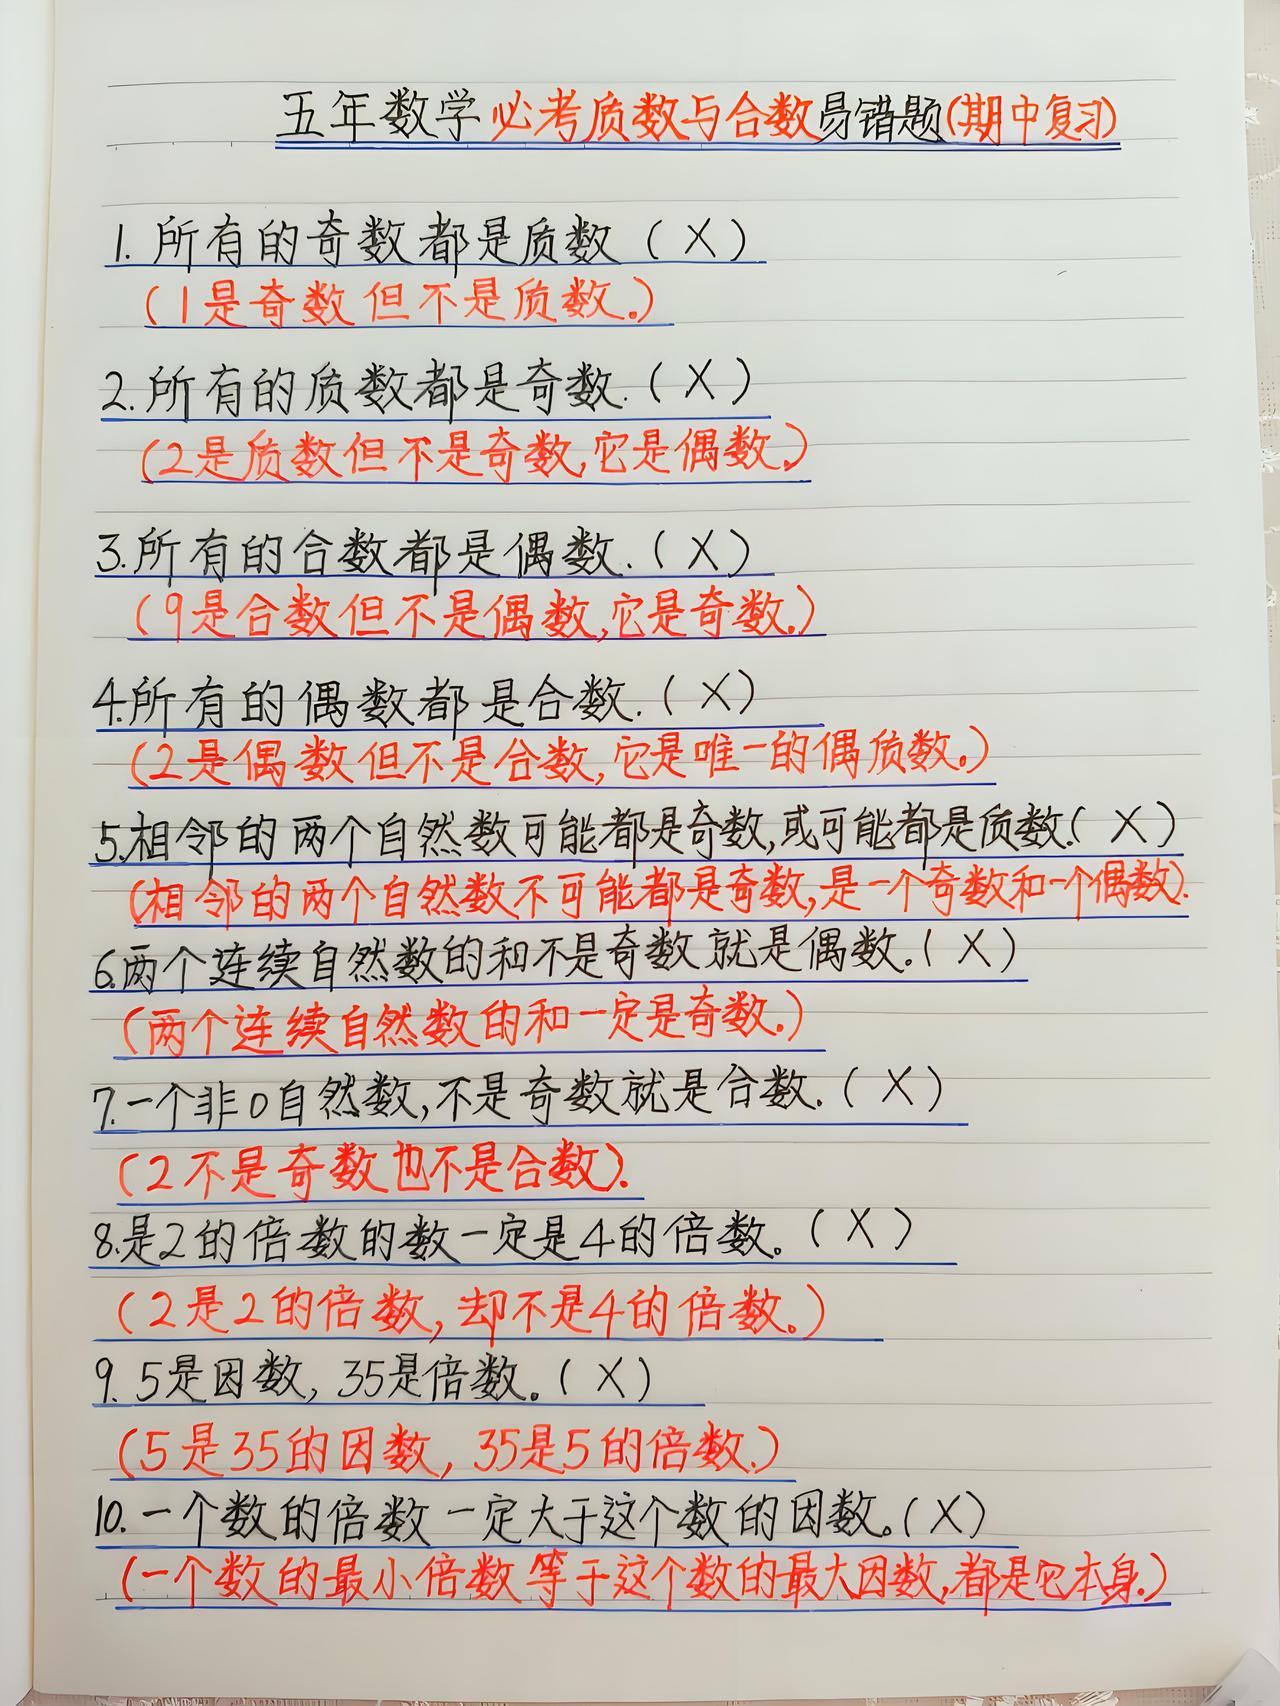 五年数学必考质数与合数易错题(期中复习)
1. 所有的奇数都是质数（X）
(1是奇数但不是质数。)
2. 所有的质数都是奇数.（X）
(2是质数但不是奇数,它是偶数。)
3.所有的合数都是偶数.（X）
(9是合数但不是偶数,它是奇数。)
4.所有的偶数都是合数.（X）
(2是偶数但不是合数,它是唯一的偶质数。)
5.相邻的两个自然数可能都是奇数,或可能都是质数.（X）
(相邻的两个自然数不可能都是奇数,是一个奇数和一个偶数).
6.两个连续自然数的和不是奇数就是偶数.（X）
(两个连续自然数的和一定是奇数。)
7.一个非0自然数,不是奇数就是合数.（X）
(2不是奇数也不是合数).
8.是2的倍数的数一定是4的倍数。（X）
(2是2的倍数,却不是4的倍数。)
9. 5是因数, 35是倍数。（X）
(5是35的因数, 35是5的倍数.)
10.一个数的倍数一定大于这个数的因数。（X）
(一个数的最小倍数等于这个数的最大因数,都是它本身。)